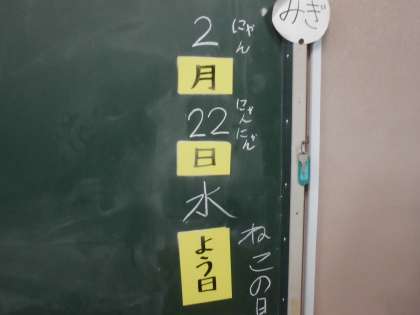 みぎ
2
にゃん
月
22
にゃんにゃん
日
水
よう日
ねこの日